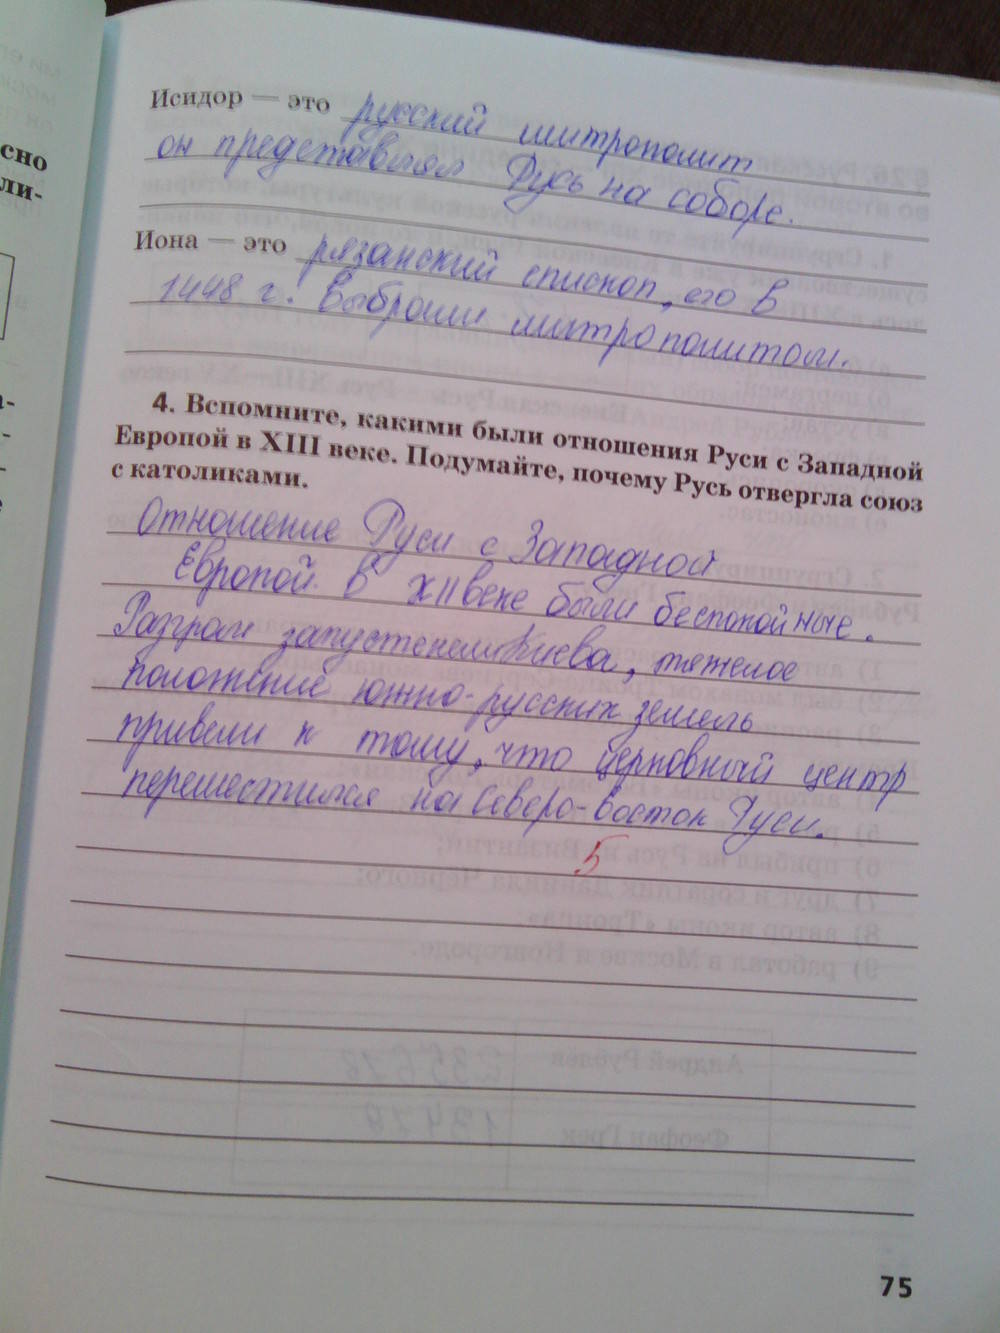 сно
ли-
Исидор — это русский митрополит
он представлял Русь на соборе.
Иона — это рязанский епископ, его в
1448 г. выбрали митрополитом.
4. Вспомните, какими были отношения Руси с Западной
Европой в XIII веке. Подумайте, почему Русь отвергла союз
с католиками.
Отношение Руси с Западной
Европой в XII веке были беспокойные.
Разгром запустения Киева, тяжелое
положение южно-русских земель
привели к тому, что церковный центр
переместился на Северо-восток Руси.
5
75